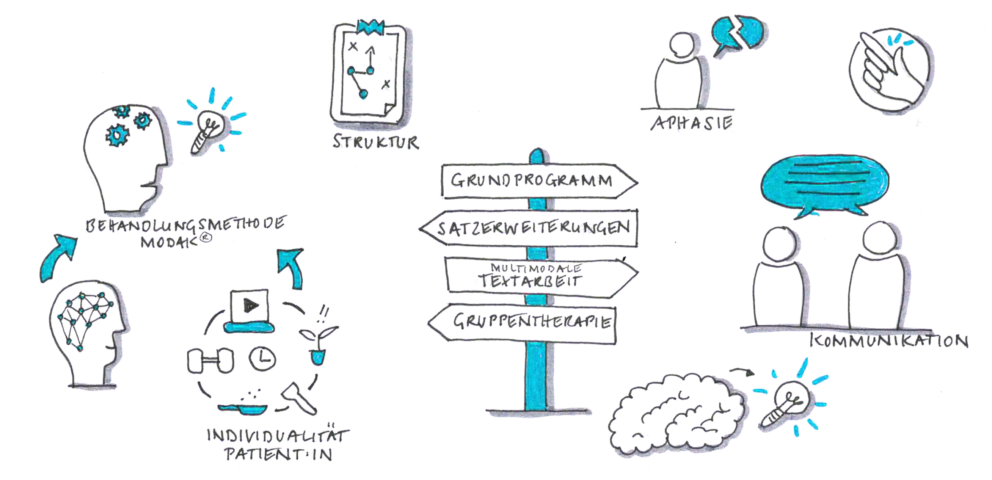 STRUKTUR
APHASIE
BEHANDLUNGSMETHODE
MODAK®
GRUNDPROGRAMM
SATZERWEITERUNGEN
MULTIMODALE
TEXTARBEIT
GRUPPENTHERAPIE
KOMMUNIKATION
!!
INDIVIDUALITÄT
PATIENT:IN